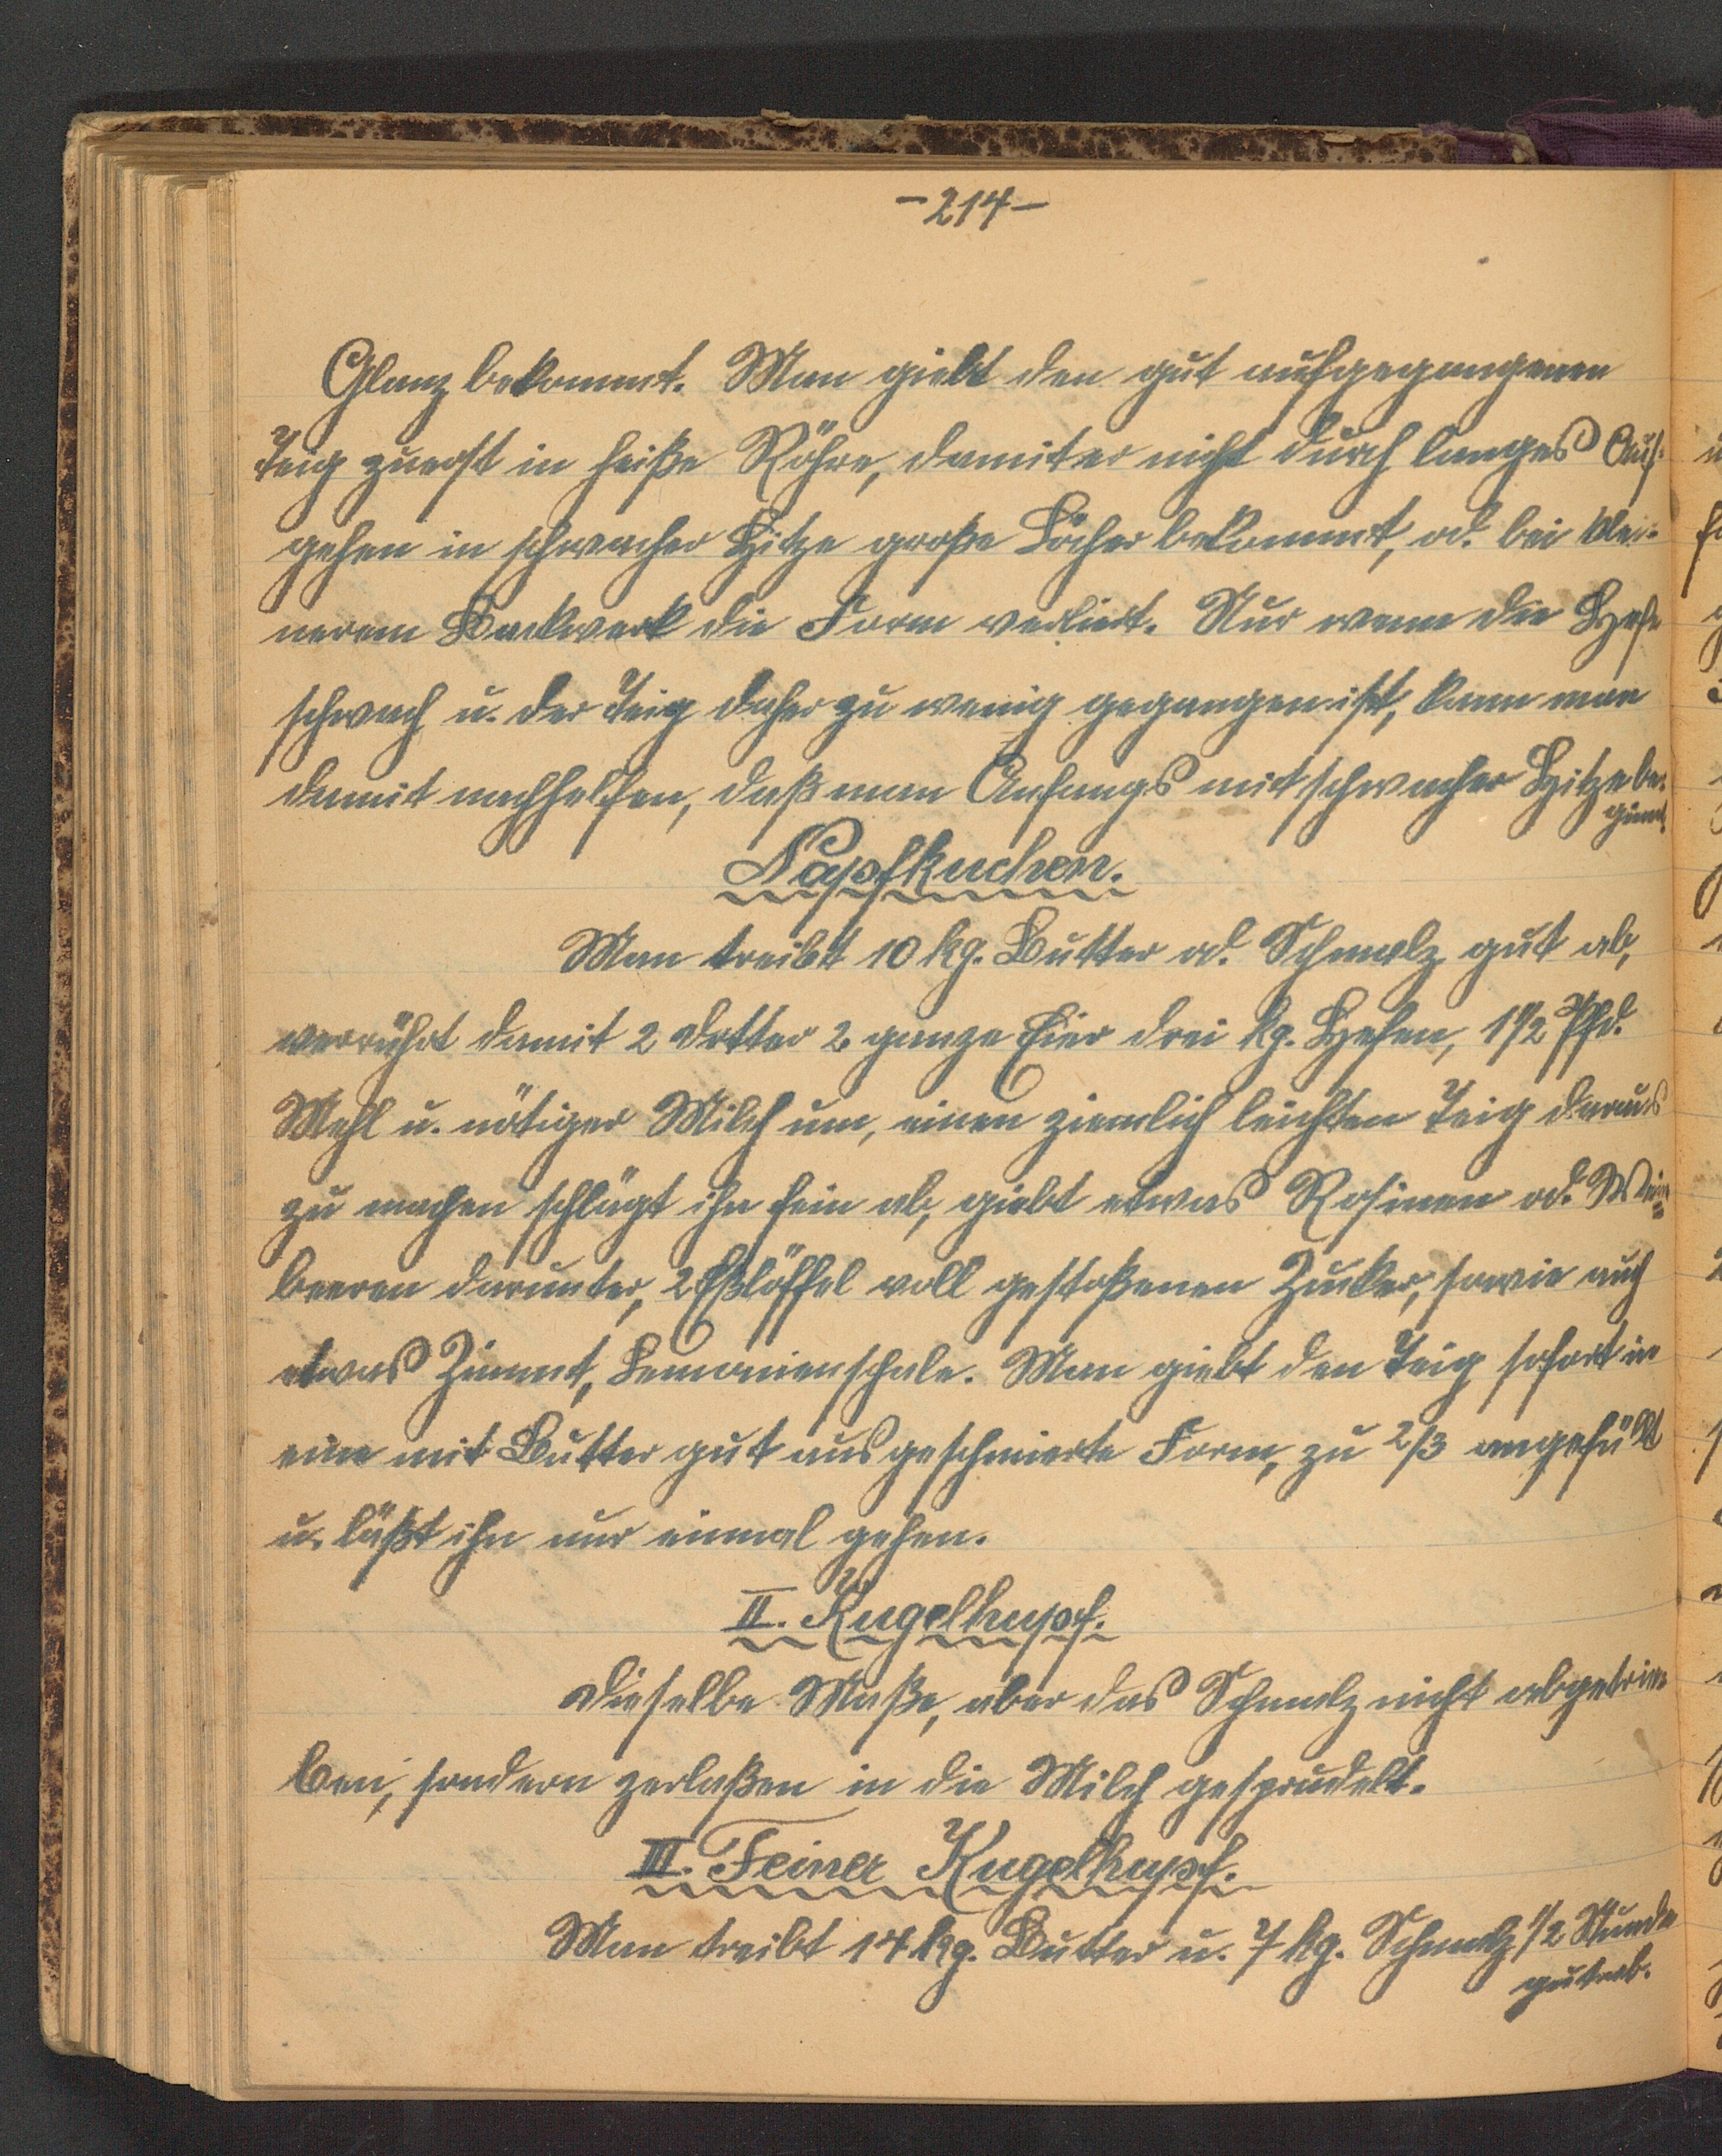 -214-
Glanz bekommt. Man giebt den gut aufgegangenen
Teig zuerst in heiße Röhre, damit er nicht durch langes Auf-
gehen in schwacher Hitze große Löcher bekommt, od. bei klei-
nerem Backwerk die Form verliert. Nur wenn die Hefe
schwach u. der Teig daher zu wenig gegangen ist, kann man
damit nachhelfen, daß man Anfangs mit schwacher Hitze be-
ginnt
Napfkuchen.
Man treibt 10 kg. Butter od. Schmalz gut ab,
verrührt damit 2 Dotter 2 ganze Eier drei kg. Hefen, 1 1/2 Pfd.
Mehl u. nötiger Milch um, einen ziemlich leichten Teig daraus
zu machen schlägt ihn fein ab, giebt etwas Rosinen od. Wein=
beeren darunter, 2 Eßlöffel voll gestoßenen Zucker, sowie auch
etwas Zimmt, Lemonienschale. Man giebt den Teig sofort in
eine mit Butter gut ausgeschmierte Form, zu 2/3 angefüllt
u. läßt ihn nur einmal gehen.
II. Kugelhupf.
Dieselbe Maße, aber das Schmalz nicht abgetrie-
ben, sondern zerlaßen in die Milch gesprudelt.
III. Feiner Kugelhupf.
Man treibt 14 kg. Butter u. 7 kg. Schmalz 1/2 Stunde
gut ab.